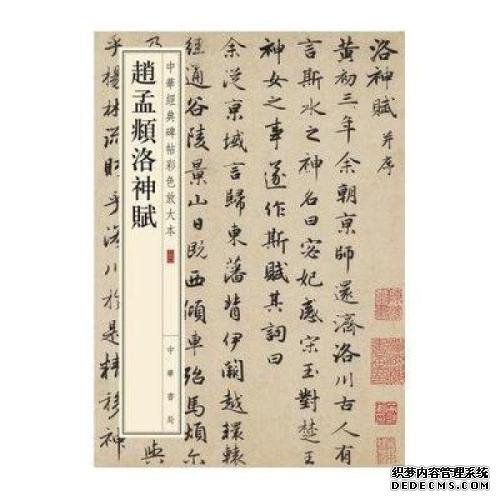 洛神賦 并序
黄初三年余朝京師還濟洛川古人有
言斯水之神名曰宓妃感宋玉對楚王
神女之事遂作斯賦其詞曰
余從京域言歸東藩背伊闕越轘轅
經通谷陵景山日既西傾車殆馬煩尔
乃
與
乎楊林流眄乎洛川於是精移神
中華經典碑帖彩色放大本
中華書局
趙孟頫洛神賦
织梦内容管理系统
DEDECMS.COM